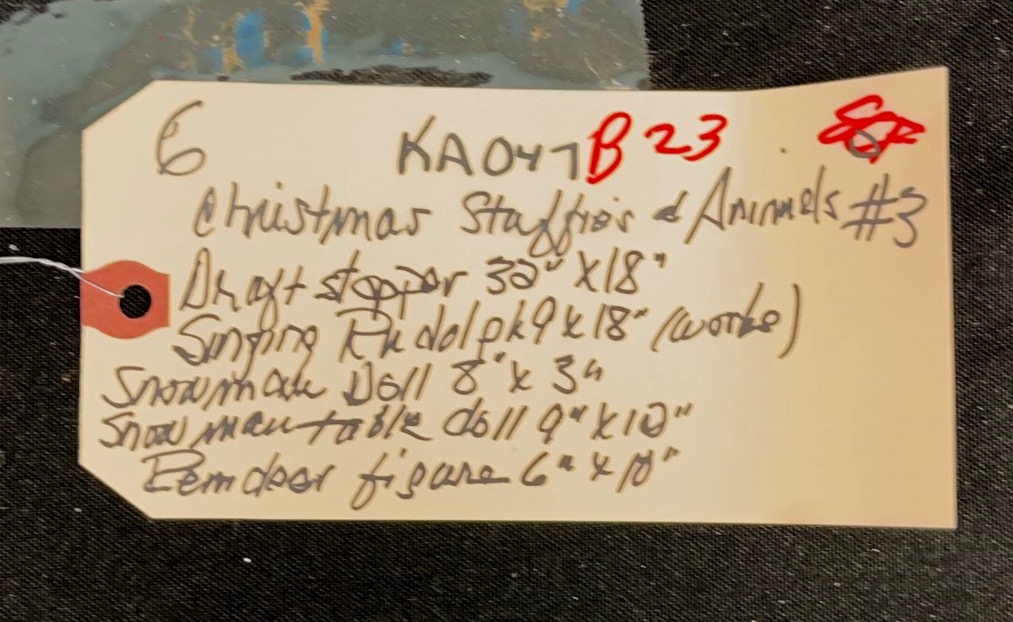 6 KA047 B 23
Christmas Staffies & Animels #3
Draft stopper 32" X18"
Singing Rudolph 9 x 18" (works)
Snowman Doll 8" x 3"
Snowman table doll 9" X10"
Reindeer figure 6" x 10"